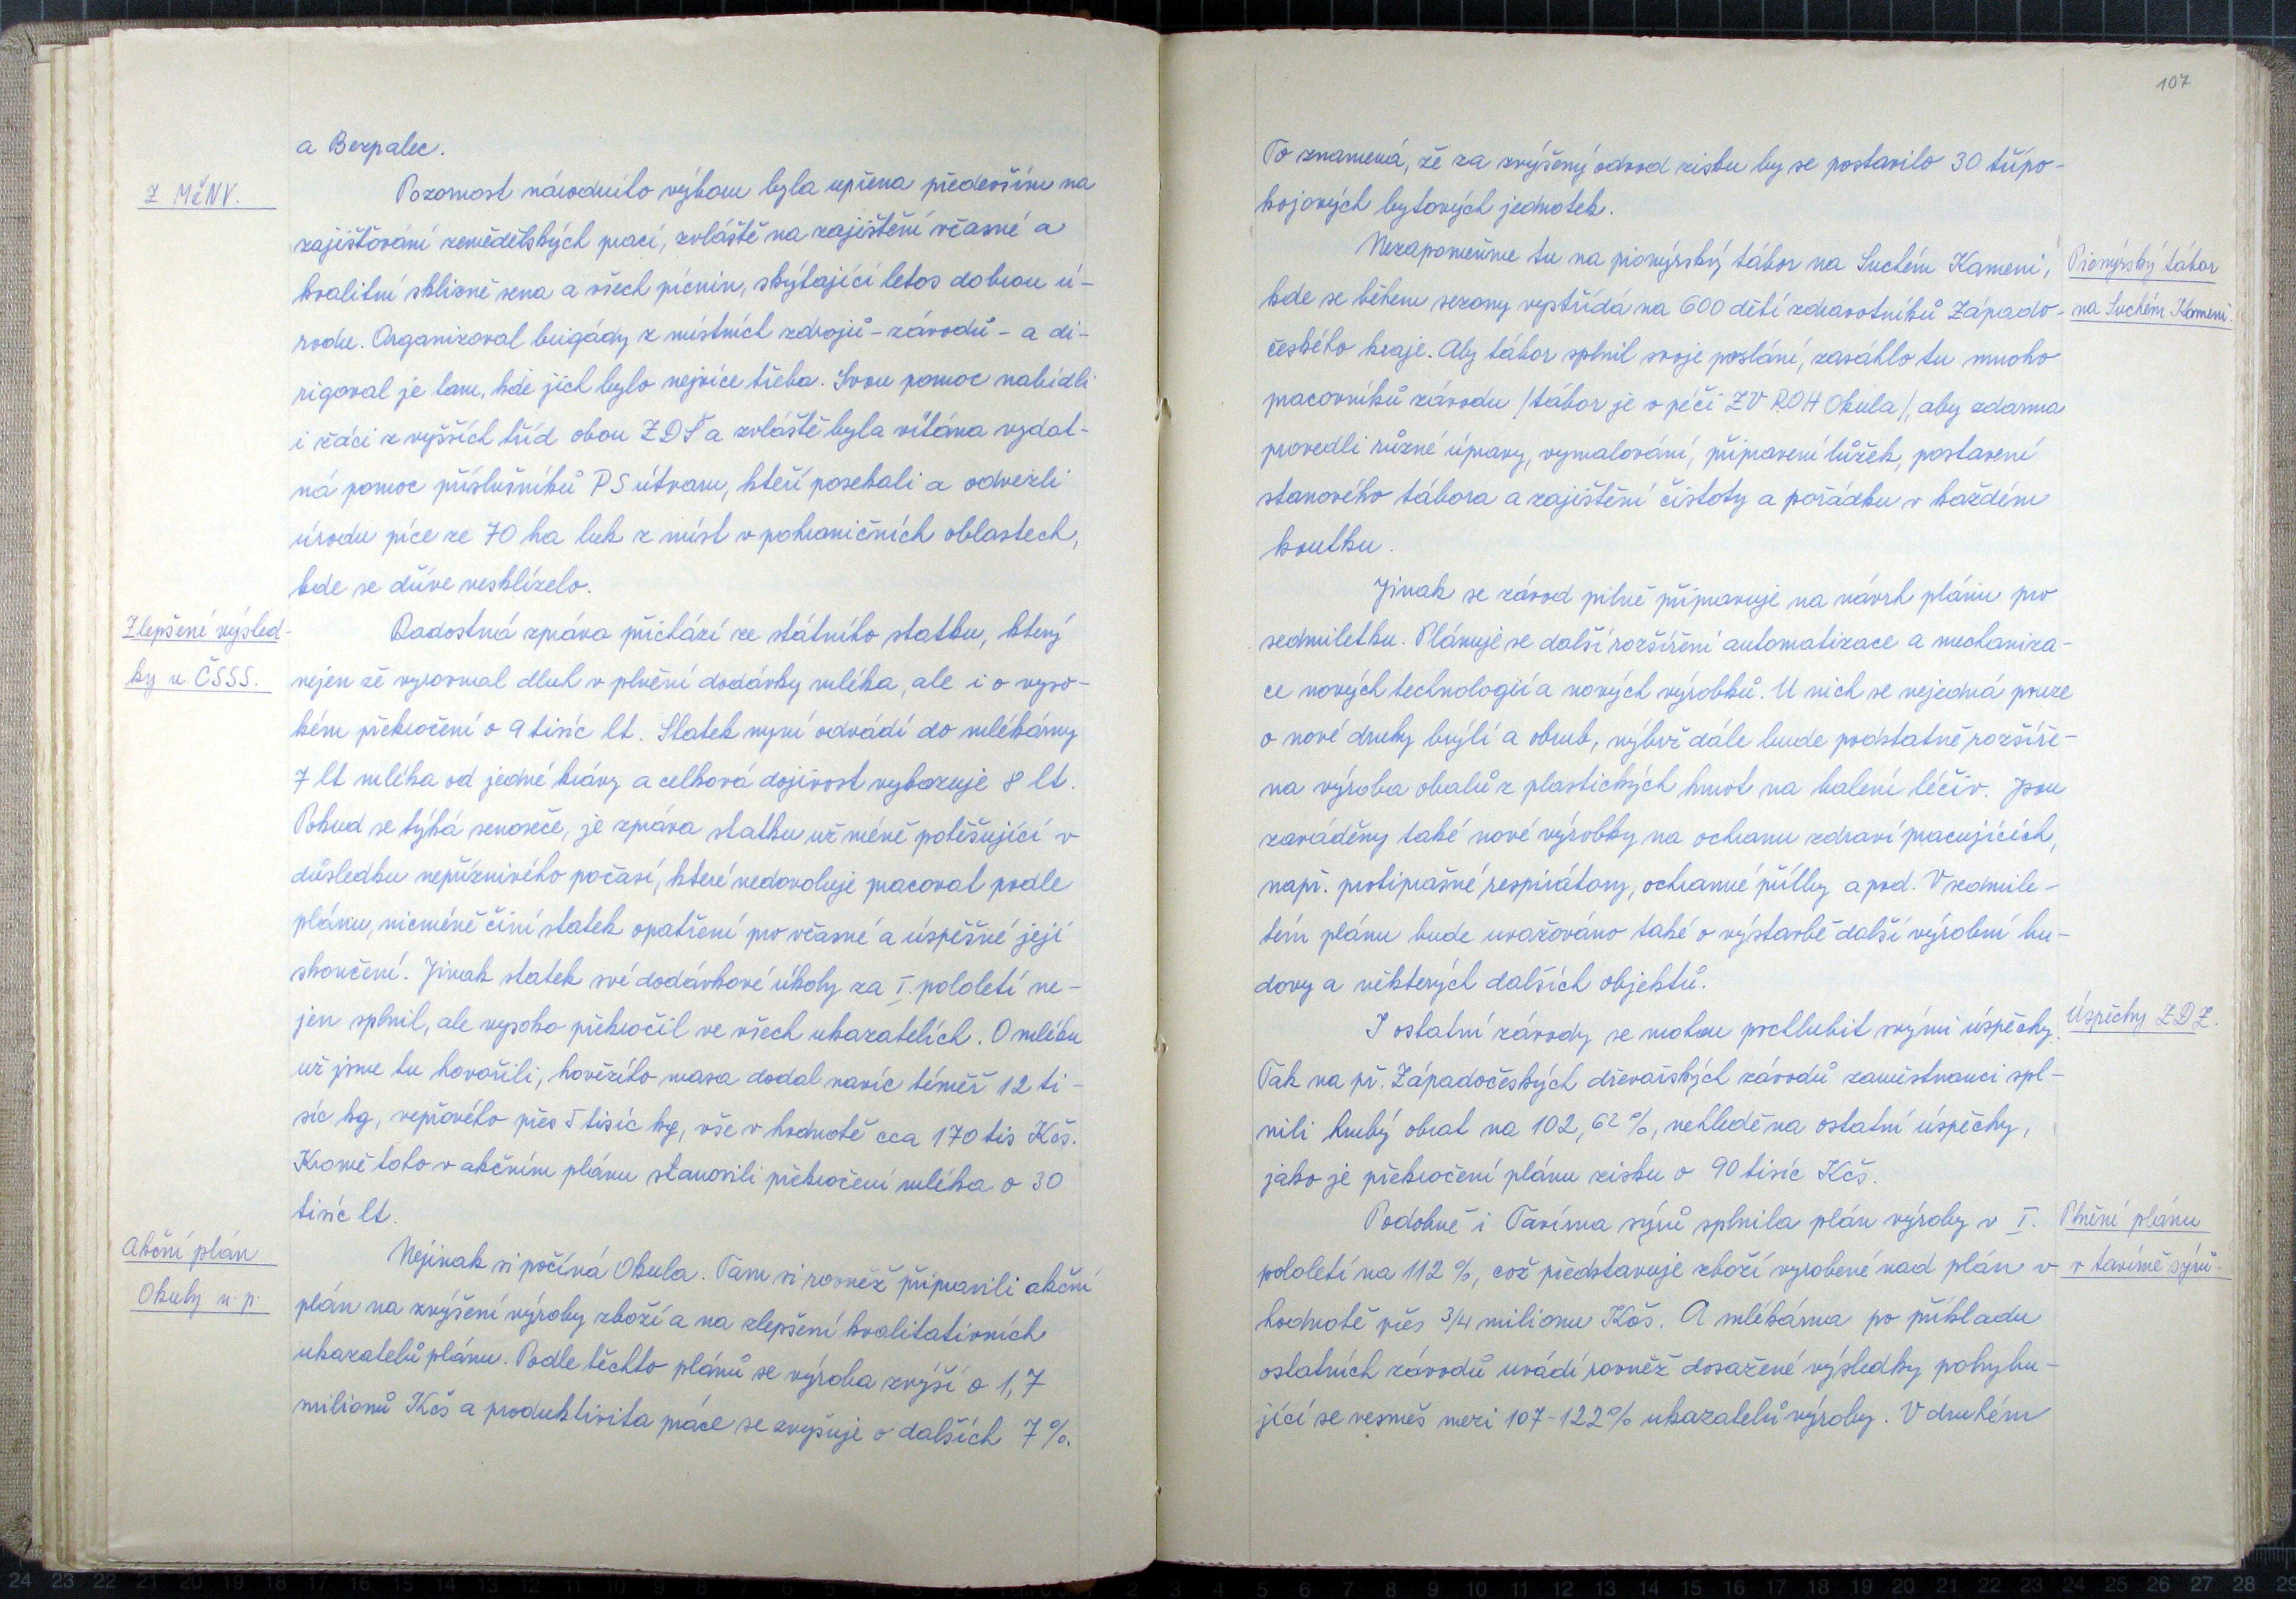 a Bezpalec.
Z MěNV.
Pozornost národního výboru byla upřena především na
zajišťování zemědělských prací, zvláště na zajištění včasné a
kvalitní sklizně sena a všech pícnin, skýtající letos dobrou ú-
rodu. Organizoval brigády z místních zdrojů - závodů - a di-
rigoval je tam, kde jich bylo nejvíce třeba. Svou pomoc nabídli
i žáci z vyšších tříd obou ZDŠ a zvláště byla vítána vydat-
ná pomoc příslušníků PS útvaru, kteří posekali a odvezli
úrodu píce ze 70 ha luk z míst v pohraničních oblastech,
kde se dříve neskízelo.
Zlepšené výsled-
ky u ČSSS.
Radostná zpráva přichází ze státního statku, který
nejen že vyrovnal dluh v plnění dodávky mléka, ale i o vyso-
kém překročení o 9 tisíc lt. Statek nyní odvádí do mlékárny
7 lt mléka od jedné krávy a celková dojivost vykazuje 8 lt.
Pokud se týká senoseče, je zpráva statku už méně potěšující v
důsledku nepříznivého počasí, které nedovoluje pracovat podle
plánu, nicméně činí statek opatření pro včasné a úspěšné její
skončení. Jinak statek své dodávkové úkoly za I. pololetí ne-
jen splnil, ale vysoko překročil ve všech ukazatelích. O mléku
už jsme tu hovořili, hovězího masa dodal navíc téměř 12 ti-
síc kg, vepřového přes 5 tisíc kg, vše v hodnotě cca 170 tis Kčs.
Kromě toho v akčním plánu stanovili překročení mléka o 30
tisíc lt.
Akční plán
Okuly n. p.
Nejinak si počíná Okula. Tam si rovněž připravili akční
plán na zvýšení výroby zboží a na zlepšení kvalitativních
ukazatelů plánu. Podle těchto plánů se výroba zvýší o 1,7
milionů Kčs a produktivita práce se zvyšuje o dalších 7 %.
107
To znamená, že za zvýšený odvod zisku by se postavilo 30 třípo-
kojových bytových jednotek.
Nezapomeňme tu na pionýrský tábor na Suchém Kameni,
Pionýrský tábor
kde se během sezony vystřídá na 600 dětí zdravotníků Západo-
na Suchém Kameni.
českého kraje. Aby tábor splnil svoje poslání, zasáhlo tu mnoho
pracovníků závodu /tábor je v péči ZV ROH Okula/, aby zdarma
provedli různé úpravy, vymalování, připravení lůžek, postavení
stanového tábora a zajištění čistoty a pořádku v každém
koutku.
Jinak se závod pilně připravuje na návrh plánu pro
sedmiletku. Plánuje se další rozšíření automatizace a mechaniza-
ce nových technologií a nových výrobků. U nich se nejedná pouze
o nové druhy brýlí a obrub, nýbrž dále bude podstatně rozšíře-
na výroba obalů z plastických hmot na balení léčiv. Jsou
zaváděny také nové výrobky na ochranu zdraví pracujících,
např. protiprašné respirátory, ochranné přílby a pod. V sedmile-
tém plánu bude uvažováno také o výstavbě další výrobní bu-
dovy a některých dalších objektů.
I ostatní závody se mohou pochlubit svými úspěchy.
Úspěchy ZDZ.
Tak na př. Západočeských dřevařských závodů zaměstnanci spl-
nili hrubý obrat na 102,62 %, nehledě na ostatní úspěchy,
jako je překročení plánu zisku o 90 tisíc Kčs.
Podobně i Tavírna sýrů splnila plán výroby v I.
Plnění plánu
pololetí na 112 %, což představuje zboží vyrobené nad plán v
v tavírně sýrů.
hodnotě přes 3/4 milionu Kčs. A mlékárna po příkladu
ostatních závodů uvádí rovněž dosažené výsledky pohybu-
jící se vesměs mezi 107-122 % ukazatelů výroby. V druhém